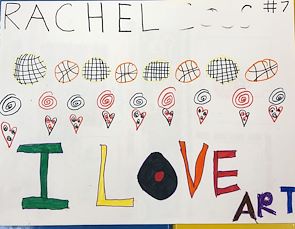 RACHEL #7
I LOVE
ART